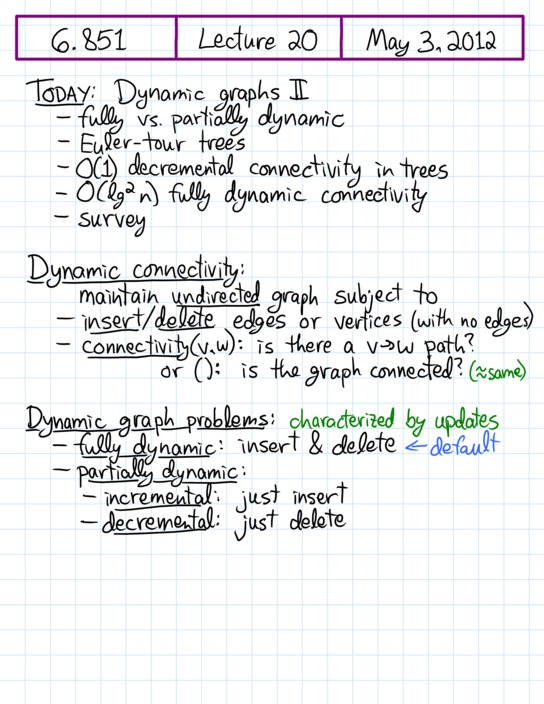 6.851 Lecture 20 May 3, 2012
TODAY: Dynamic graphs II
- fully vs. partially dynamic
- Euler-tour trees
- O(1) decremental connectivity in trees
- O(lg² n) fully dynamic connectivity
- survey
Dynamic connectivity:
maintain undirected graph subject to
- insert/delete edges or vertices (with no edges)
- connectivity(v,w): is there a v→w path?
or (): is the graph connected? (≈same)
Dynamic graph problems: characterized by updates
- fully dynamic: insert & delete ← default
- partially dynamic:
- incremental: just insert
- decremental: just delete